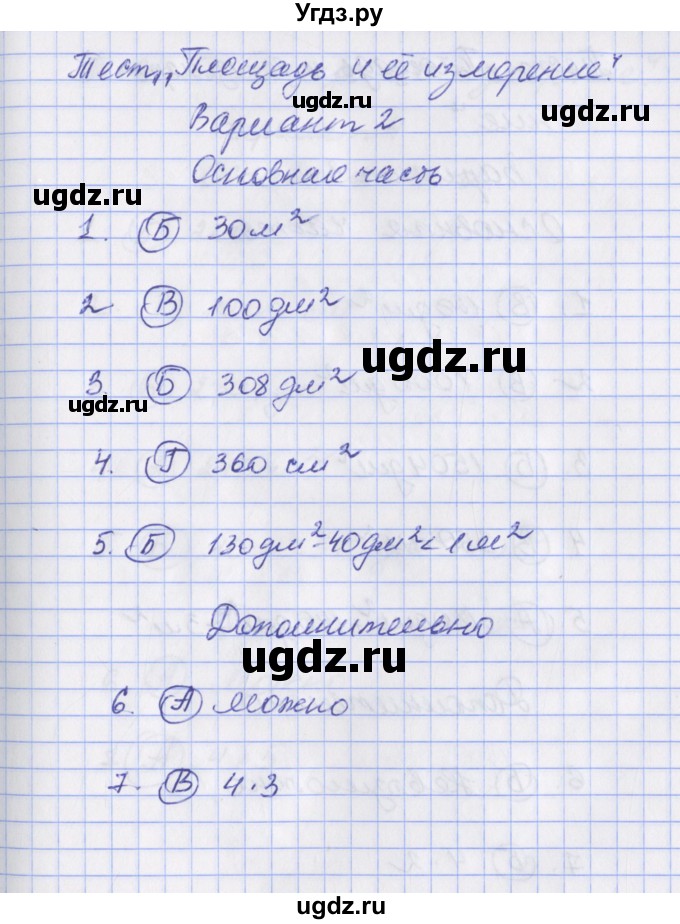 Угдз.ру
Тест „Площадь и её измерение“
ugdz.ru ugdz.ru
Вариант 2
Основная часть
ugdz.ru
1. Б 30 м²
2 В 100 дм²
ugdz.ru
3. Б 308 дм²
ugdz.ru
4. Г 360 см²
5. Б 130 дм² - 40 дм² < 1 м²
Дополнительно
ugdz.ru
6. А можно
7. В 4·3
ugdz.ru